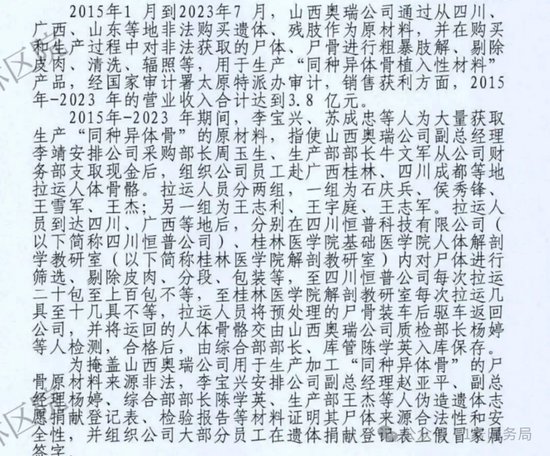 2015年1月到2023年7月，山西奥瑞公司通过从四川、
广西、山东等地非法购买遗体、残肢作为原材料，并在购买
和生产过程中对非法获取的尸体、尸骨进行粗暴肢解、剔除
皮肉、清洗、辐照等，用于生产“同种异体骨植入性材料”
产品，经国家审计署太原特派办审计，销售获利方面，2015
年-2023 年的营业收入合计达到3.8 亿元。
2015年-2023 年期间，李宝兴、苏成忠等人为大量获取
生产“同种异体骨”的原材料，指使山西奥瑞公司副总经理
李靖安排公司采购部长周玉生、生产部部长牛文军从公司财
务部支取现金后，组织公司员工赴广西桂林、四川成都等地
拉运人体骨骼。拉运人员分两组，一组为石庆兵、侯秀锋、
王雪军、王杰；另一组为王志利、王宇庭、王志军。拉运人
员到达四川、广西等地后，分别在四川恒普科技有限公司（
以下简称四川恒普公司）、桂林医学院基础医学院人体解剖
学教研室（以下简称桂林医学院解剖教研室）内对尸体进行
筛选、剔除皮肉、分段、包装等，至四川恒普公司每次拉运
二十包至上百包不等，至桂林医学院解剖教研室每次拉运几
具至十几具不等，拉运人员将预处理的尸骨装车后驱车返回
公司，并将运回的人体骨骼交由山西奥瑞公司质检部长杨婷
等人检测，合格后，由综合部部长、库管陈学英入库保存。
为掩盖山西奥瑞公司用于生产加工“同种异体骨”的尸
骨原材料来源非法，李宝兴安排公司副总经理赵亚平、副总
经理杨婷、综合部部长陈学英、生产部王杰等人伪造遗体志
愿捐献登记表、检验报告等材料证明其尸体来源合法性和安
全性，并组织公司大部分员工在遗体捐献登记表上假冒家属
签字。
林区院
林区院